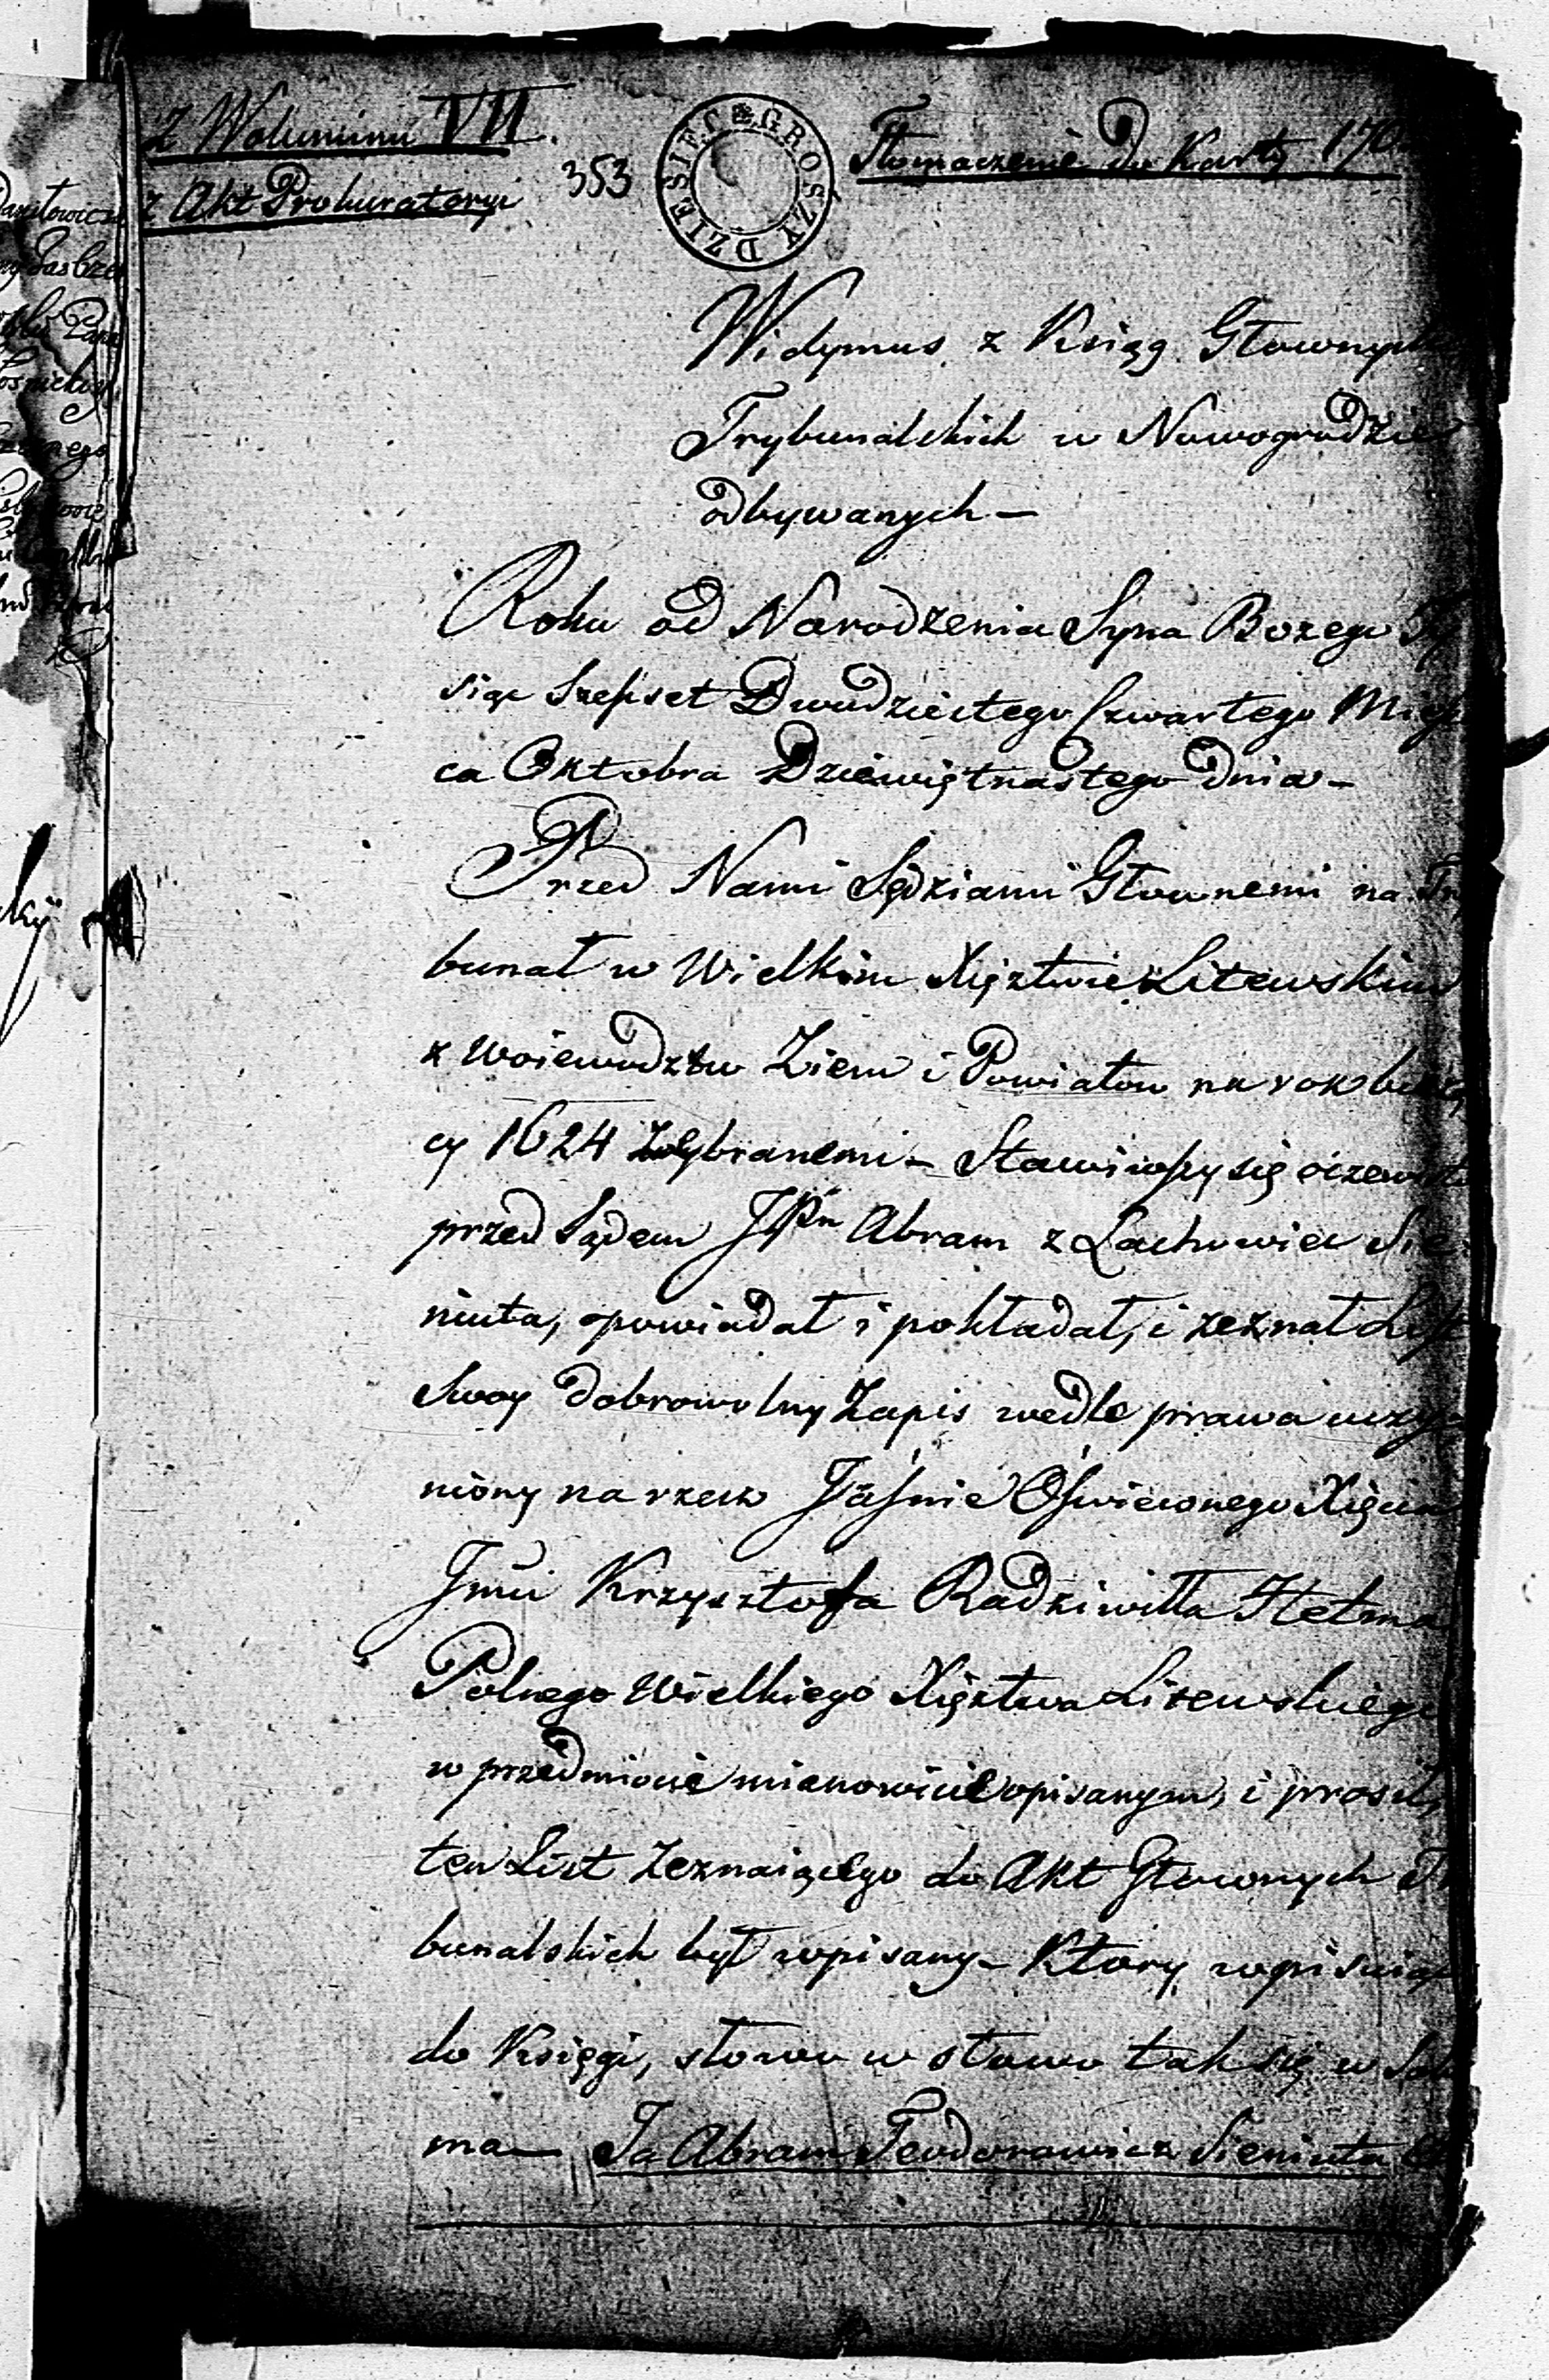 Z Woluminu VII.
z Akt Prokuratoryi
353
DZIESIĘĆ GROSZY
Tłomaczenie Do Karty 170
Widymus z Ksiąg Głownych
Trybunalskich w Nowogrodzie
odbywanych —
Roku od Narodzenia Syna Bozego Ty
siąc Szesset Dwudziestego Czwartego Miesią
ca Oktobra Dziewiętnastego Dnia —
Przed Nami Sędziami Głownemi na Try
bunał w Wielkim Xięztwie Litewskim
z Woiewodztw Ziem i Powiatow na rok bieżą
cy 1624 wybranemi — Stawiwszy się oczewisto
przed Sądem JPn Abram z Lachowiec Sie
niuta, opowiadał i pokładał, i zeznał List
Swoy dobrowolny Zapis wedle prawa uczy
niony na rzecz Jaśnie Oświeconego Xięcia
Jmci Krzysztofa Radziwiłła Hetma
Polnego Wielkiego Xięztwa Litewskiego
w przedmiocie mianowicie opisanym, i prosił,
ten List Zeznaiącego do Akt Głownych Try
bunalskich był wpisany — Ktory wpisuiąc
do Księgi, słowo w słowo tak się w Sobie
ma — Ja Abram Teodorowicz Sieniuta